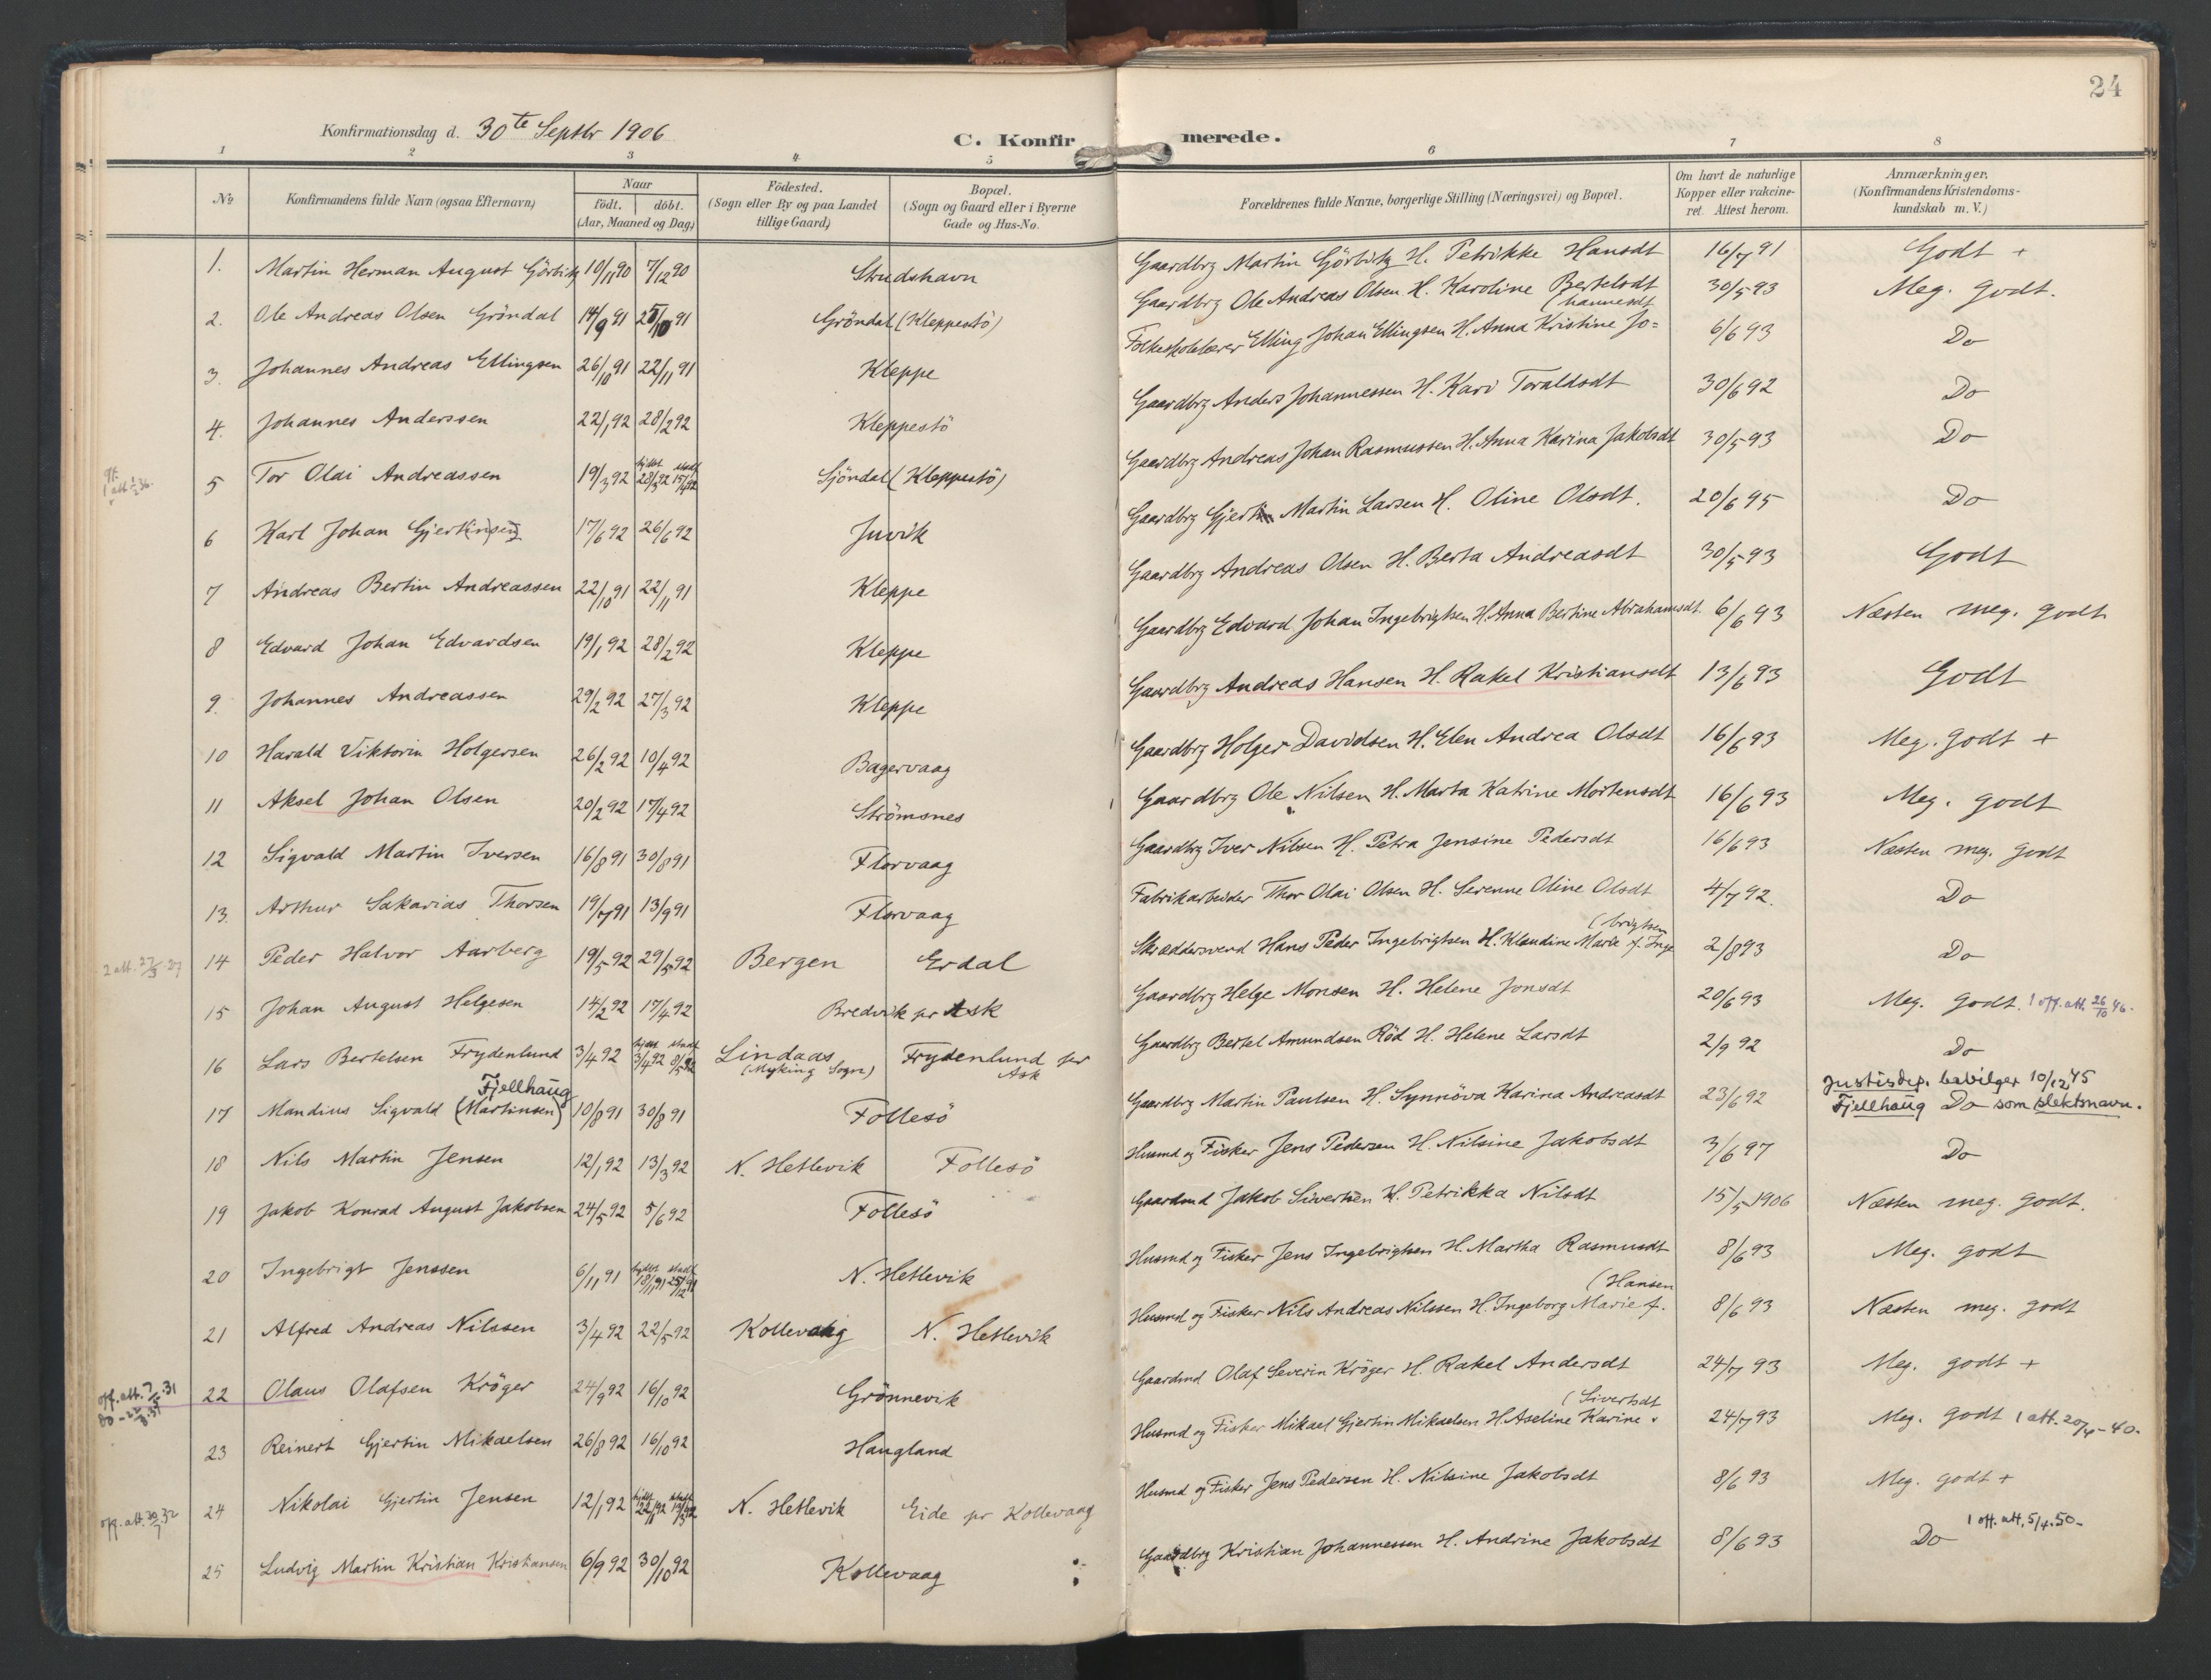 24
Konfirmationsdag d. 30te Septbr 1906
C. Konfirmerede.
1 2 3 4 5 6 7 8
No
Konfirmandens fulde Navn (ogsaa Efternavn)
Naar
født. døbt.
(Aar, Maaned og Dag)
Fødested.
(Sogn eller By og paa Landet
tillige Gaard)
Bopæl.
(Sogn og Gaard eller i Byerne
Gade og Hus-No.
Forældrenes fulde Navne, borgerlige Stilling (Næringsvei) og Bopæl.
Om havt de naturlige
Kopper eller vakcine-
ret. Attest herom.
Anmærkninger.
(Konfirmandens Kristendoms-
kundskab m. V.)
1. Martin Herman August Görbitz 10/11 90 7/12 90 Strudshavn Gaardbrg Martin Görbitz H. Petrikke Hansdt 16/7 91 Godt +
2. Ole Andreas Olsen Gröndal 14/9 91 25/10 91 Gröndal (Kleppestö) Gaardbrg Ole Andreas Olsen H. Karoline Bertelsdt 30/5 93 Meg. godt.
3. Johannes Andreas Ellingsen 26/10 91 22/11 91 Kleppe Folkeskolelærer Elling Johan Ellingsen H. Anna Kristine Jo= (hannesdt 6/6 93 Do
4. Johannes Anderssen 22/1 92 28/2 92 Kleppestö Gaardbrg Anders Johannessen H. Kari Toraldsdt 30/6 92 Do
5 Tor Olai Andreassen 19/3 92 hjdøt 28/3 92 stadf 15/4 92 Sjöndal (Kleppestö) Gaardbrg Andreas Johan Rasmussen H. Anna Karina Jakobsdt 30/5 93 Do
6 Karl Johan Gjertinsen 17/6 92 26/6 92 Juvik Gaardbrg Gjertin Martin Larsen H. Oline Olsdt. 20/6 95 Do
7 Andreas Bertin Andreassen 22/10 91 22/11 91 Kleppe Gaardbrg Andreas Olsen H. Berta Andreasdt 30/5 93 Godt
8 Edvard Johan Edvardsen 19/1 92 28/2 92 Kleppe Gaardbrg Edvard Johan Ingebrigtsen H. Anna Bertine Abrahamsdt. 6/6 93 Næsten meg. godt
9. Johannes Andreassen 29/2 92 27/3 92 Kleppe Gaardbrg Andreas Hansen H. Rakel Kristiansdt 13/6 93 Godt
10 Harald Viktorin Holgersen 26/2 92 10/4 92 Bagervaag Gaardbrg Holger Davidsen H. Elen Andrea Olsdt 16/6 93 Meg. godt +
11 Aksel Johan Olsen 20/2 92 17/4 92 Strömsnes Gaardbrg Ole Nilsen H. Marta Katrine Mortensdt 16/6 93 Meg. godt
12 Sigvald Martin Iversen 16/8 91 30/8 91 Florvaag Gaardbrg Iver Nilsen H. Petra Jensine Pedersdt 16/6 93 Næsten meg. godt
13. Arthur Sakarias Thorsen 19/7 91 13/9 91 Florvaag Fabrikarbeider Thor Olai Olsen H. Serenne Oline Olsdt 4/7 92. Do
2 att. 27/3 27 14 Peder Halvor Aarberg 19/5 92 29/5 92 Bergen Erdal Skræddersvend Hans Peder Ingebrigtsen H. Klaudine Marie f. Inge (brigtsen 2/8 93 Do
15 Johan August Helgesen 14/2 92 17/4 92 Bredvik pr Ask Gaardbrg Helge Monsen H. Helene Jonsdt 20/6 93 Meg. godt. 1 off. att. 26/10 46.
16 Lars Bertelsen Frydenlund 3/4 92 hjdøt 3/4 92 stadf 8/5 92 Lindaas (Myking Sogn) Frydenlund pr Ask Gaardbrg Bertel Amundsen Röd H. Helene Larsdt 2/9 92 Do
17 Mandius Sigvald (Martinsen) Fjellhaug 10/8 91 30/8 91 Follesö Gaardbrg Martin Paulsen H. Synnöva Karina Andreasdt 23/6 92 Justisdep. bevilger 10/12 45 Fjellhaug Do som slektsnavn.
18 Nils Martin Jensen 12/1 92 13/3 92 N. Hetlevik Follesö Husmd og Fisker Jens Pedersen H. Nilsine Jakobsdt 3/6 97 Do
19 Jakob Konrad August Jakobsen 24/5 92 5/6 92 Follesö Gaardmd Jakob Sivertsen H. Petrikka Nilsdt 15/5 1906 Næsten meg. godt.
20 Ingebrigt Jenssen 6/11 91 hjdøt 18/11 91 stadf 25/12 91 N. Hetlevik Husmd og Fisker Jens Ingebrigtsen H. Martha Rasmusdt 8/6 93 Meg. godt
21 Alfred Andreas Nilssen 3/4 92 22/5 92 Kollevaag N. Hetlevik Husmd og Fisker Nils Andreas Nilssen H. Ingeborg Marie f. (Hansen 8/6 93 Næsten meg. godt
22 Olaus Olafsen Kröger 24/9 92 16/10 92 Grönnevik Gaardmd Olaf Severin Kröger H. Rakel Andersdt 24/7 93 Meg. godt +
23 Reinert Gjertin Mikaelsen 26/8 92 16/10 92 Haugland Husmd og Fisker Mikael Gjertin Mikaelsen H. Aseline Karine (Sivertsdt 24/7 93 Meg. godt 1 att. 20/4-40.
24 Nikolai Gjertin Jensen 12/1 92 N. Hetlevik Eide pr Kollevaag Husmd og Fisker Jens Pedersen H. Nilsine Jakobsdt 8/6 93 Meg. godt +
25 Ludvig Martin Kristian Kristiansen 6/9 92 30/10 92 Kollevaag Gaardbrg Kristian Johannessen H. Andrine Jakobsdt 8/6 93 Do 1 off. att. 5/4.50-